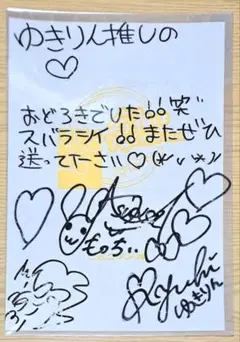 ゆきりん推しの
♡
おどろきでした!!笑
スバラシイ!!またぜひ
送ってたさい♡(*ˇvˇ*)ﾉ
もっちぃ
ゆきりん